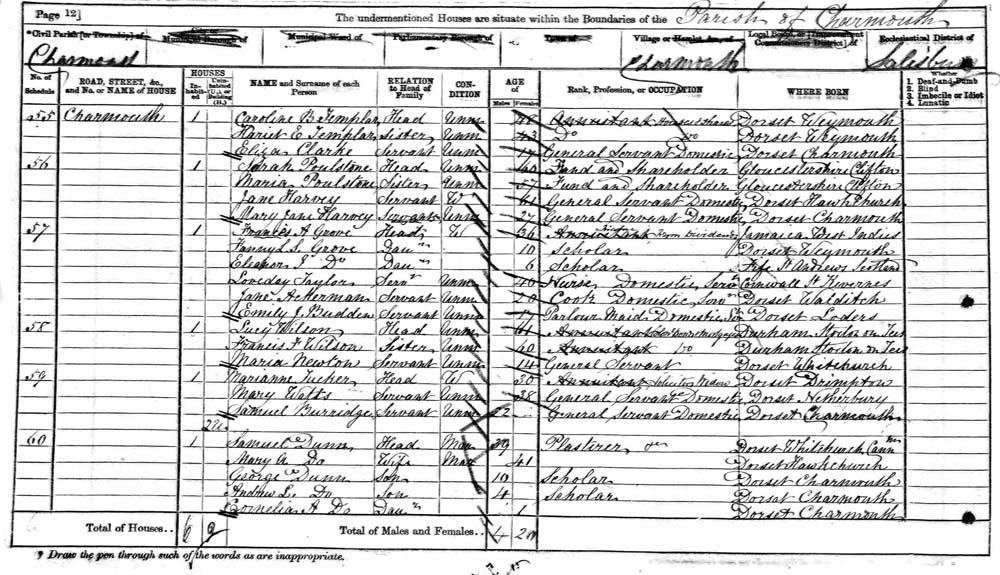 Page 12]
The undermentioned Houses are situate within the Boundaries of the Parish of Charmouth
*Civil Parish [or Township] of Municipal Borough of Municipal Ward of Parliamentary Borough of Town of Village or Hamlet, &c., of Local Board, or [Improvement Commissioners District] of Ecclesiastical District of
Charmouth Charmouth Salisbury
No. of Schedule ROAD, STREET, &c., and No. or NAME of HOUSE HOUSES Inhabited Uninhabited (U.), or Building (B.) NAME and Surname of each Person RELATION to Head of Family CONDITION AGE of Males Females Rank, Profession, or OCCUPATION WHERE BORN Whether 1. Deaf-and-Dumb 2. Blind 3. Imbecile or Idiot 4. Lunatic
55 Charmouth 1 Caroline B Templar Head Unm Annuitant Dorset Weymouth
Hariet E Templar Sister Unm 43 Do Dorset Weymouth
Eliza Clarke Servant Unm General Servant Domestic Dorset Charmouth
56 1 Sarah Poulstone Head Unm Fund and Shareholder Gloucestershire Clifton
Maria Poulstone Sister Unm 57 Fund and Shareholder Gloucestershire Clifton
Jane Harvey Servant W 61 General Servant Domestic Dorset Hawkchurch
Mary Jane Harvey Servant Unm 27 General Servant Domestic Dorset Charmouth
57 1 Frances A Grove Head W 36 Annuitant from Dividends Jamaica West Indies
Fanny L S Grove Daur 10 Scholar Dorset Weymouth
Eleanor J Do Daur 6 Scholar Fife St Andrews Scotland
Loveday Taylor Servt Unm 40 Nurse Domestic Servt Cornwall St Kevernes
Jane Ackerman Servant Unm 20 Cook Domestic Servt Dorset Walditch
Emily J Budden Servant Unm 17 Parlour Maid Domestic Dorset Loders
58 1 Lucy Wilson Head Unm 61 Annuitant Durham Stockton on Tees
Francis F Wilson Sister Unm 60 Annuitant Do Durham Stockton on Tees
Maria Newton Servant Unm 14 General Servant Dorset Whitchurch
59 1 Marianne Tucker Head W 30 Annuitant Dorset Drimpton
Mary Watts Servant Unm 38 General Servant Domestic Dorset Netherbury
Samuel Burridge Servant Unm 22 General Servant Domestic Dorset Charmouth
2U
60 1 Samuel Dunn Head Mar 39 Plasterer Dorset Whitchurch Cann
Mary A Do Wife Mar 41 Dorset Hawkchurch
George Dunn Son 10 Scholar Dorset Charmouth
Andrew L Do Son 4 Scholar Dorset Charmouth
Cornelia A Do Daur 1 Dorset Charmouth
Total of Houses.. 6 2 Total of Males and Females.. 4 20
* Draw the pen through such of the words as are inappropriate.